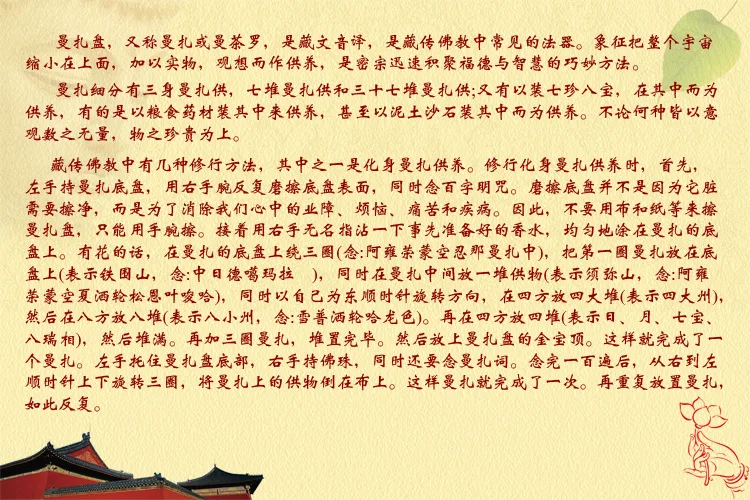 曼扎盘，又称曼扎或曼荼罗，是藏文音译，是藏传佛教中常见的法器。象征把整个宇宙
缩小在上面，加以实物，观想而作供养，是密宗迅速积聚福德与智慧的巧妙方法。
曼扎细分有三身曼扎供，七堆曼扎供和三十七堆曼扎供;又有以装七珍八宝，在其中而为
供养，有的是以粮食药材装其中来供养，甚至以泥土沙石装其中而为供养。不论何种皆以意
观数之无量，物之珍贵为上。
藏传佛教中有几种修行方法，其中之一是化身曼扎供养。修行化身曼扎供养时，首先，
左手持曼扎底盘，用右手腕反复磨擦底盘表面，同时念百字明咒。磨擦底盘并不是因为它脏
需要擦净，而是为了消除我们心中的业障、烦恼、痛苦和疾病。因此，不要用布和纸等来擦
曼扎盘，只能用手腕擦。接着用右手无名指沾一下事先准备好的香水，均匀地涂在曼扎的底
盘上。有花的话，在曼扎的底盘上绕三圈(念:阿雍荣蒙空忍那曼扎中)，把第一圈曼扎放在底
盘上(表示铁围山，念:中日德噶玛拉 )，同时在曼扎中间放一堆供物(表示须弥山，念:阿雍
荣蒙空夏洒轮松恩叶唆哈)，同时以自己为东顺时针旋转方向，在四方放四大堆(表示四大州)，
然后在八方放八堆(表示八小州，念:雪普洒轮哈龙色)。再在四方放四堆(表示日、月、七宝、
八瑞相)，然后堆满。再加三圈曼扎，堆置完毕。然后放上曼扎盘的金宝顶。这样就完成了一
个曼扎。左手托住曼扎盘底部，右手持佛珠，同时还要念曼扎词。念完一百遍后，从右到左
顺时针上下旋转三圈，将曼扎上的供物倒在布上。这样曼扎就完成了一次。再重复放置曼扎，
如此反复。